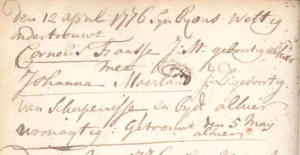 den 12 april 1776 Zyn by ons wettig
ondertrouwt
Cornelis Fraasse J:M: geboortig alhier
met
Johanna Moerland J:D: geboortig
van Scherpenisse en byde alhier
woonagtig: Getrouwt den 5 Maij
alhier